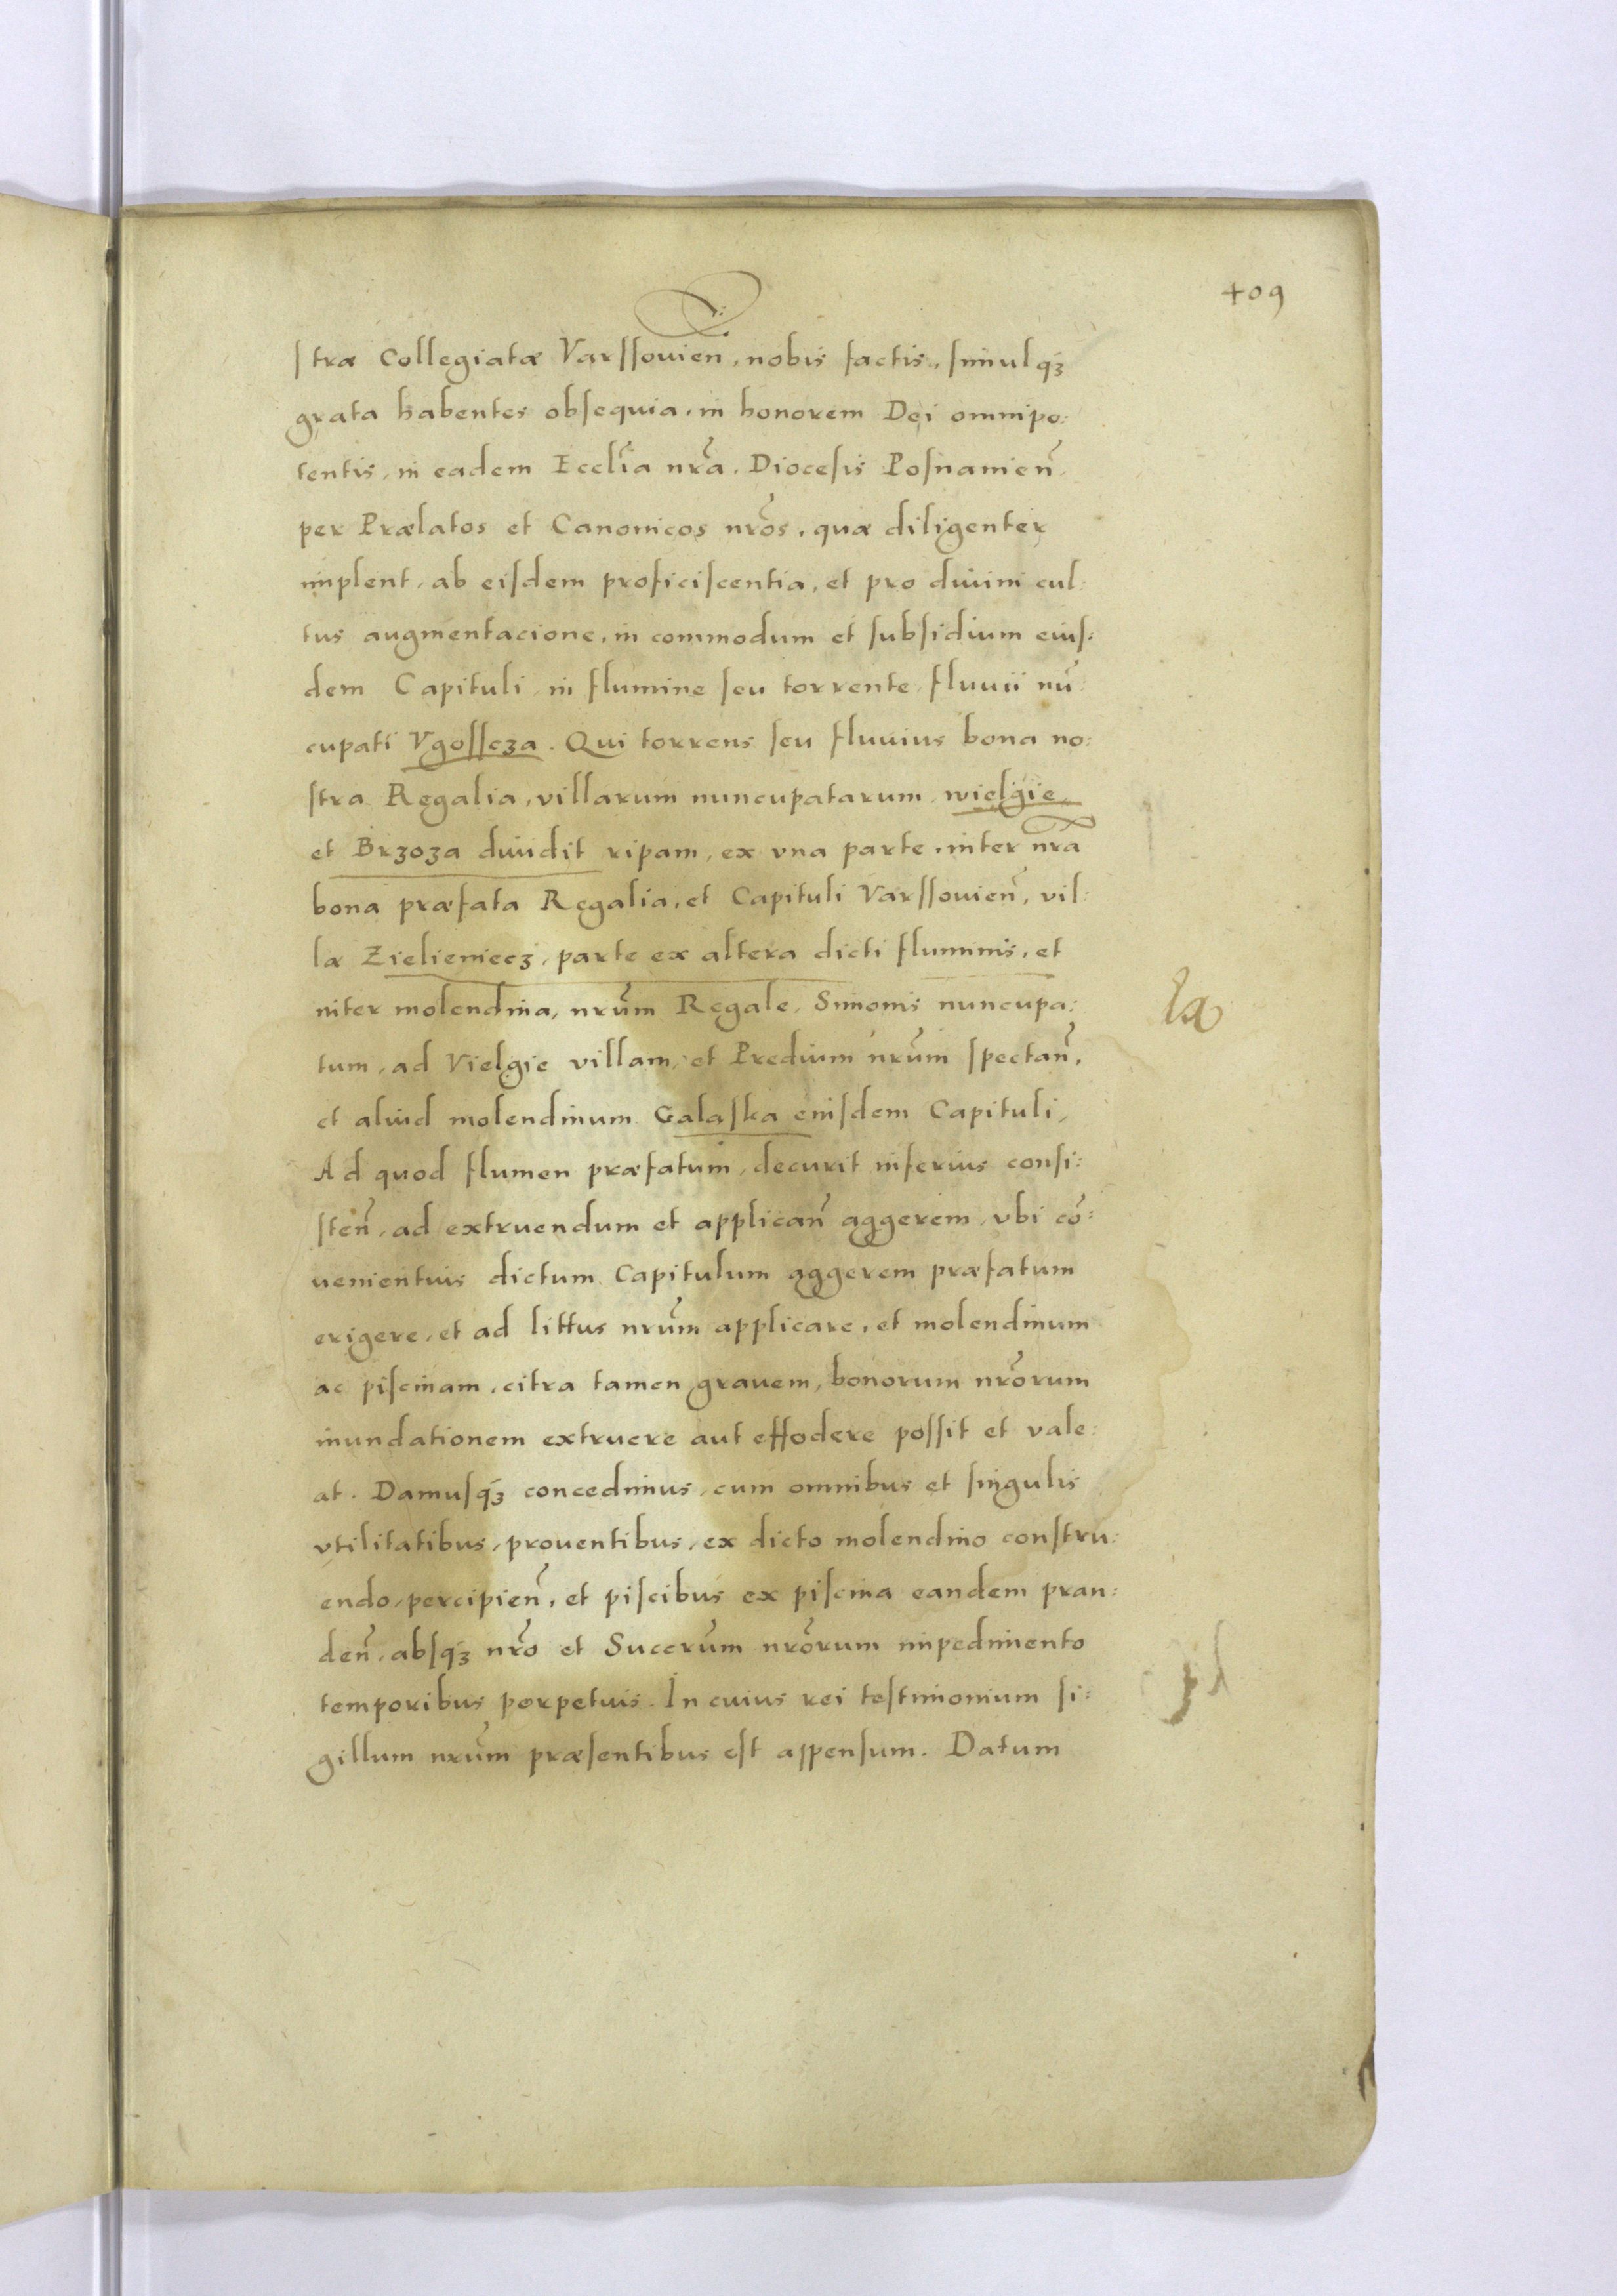 409
ſtræ Collegiatæ Varſſouien̄, nobis factis, ſimulqꝫ
grata habentes obſequia, in honorem Dei omnipo:
tentis, in eadem Eccl̃ia nr̃a, Diocesis Poſnamien̄,
per Prælatos et Canonicos nr̃os, quæ diligenter
implent, ab eiſdem proficiſcentia, et pro diuini cul:
tus augmentacione, in commodum et ſubſidium eiuſ:
dem Capituli, in flumine ſeu torrente, fluuii nū:
cupati Vgoſſcza. Qui torrens ſeu fluuius bona no:
ſtra Regalia, villarum nuncupatarum, wielgie,
et Brzoza diuidit ripam, ex vna parte, inter nr̃a
bona præfata Regalia, et Capituli Varſſouien̄, vil:
læ Zielieniecz, parte ex altera dicti fluminis, et
inter molendina, nr̃um Regale, Simonis nuncupa:
tum, ad Vielgie villam, et Predium nr̃um ſpectan̄,
et aliud molendinum Galaſka eiuſdem Capituli,
Ad quod flumen præfatum, decurit inferius conſi:
ſten̄, ad extruendum et applican̄ aggerem, vbi cō:
uenientius dictum Capitulum aggerem præfatum
erigere, et ad littus nr̃um applicare, et molendinum
ac piſcinam, citra tamen grauem, bonorum nr̃orum
inundationem extruere aut effodere poſſit et vale:
at. Damuſqꝫ concedimus, cum omnibus et ſingulis
vtilitatibus, prouentibus, ex dicto molendino conſtru:
endo, percipien̄, et piſcibus ex piſcina eandem pran:
den̄, abſqꝫ nr̃o et Succr̃um nr̃orum impedimento
temporibus perpetuis. In cuius rei teſtimonium ſi:
gillum nr̃um præſentibus eſt appenſum. Datum